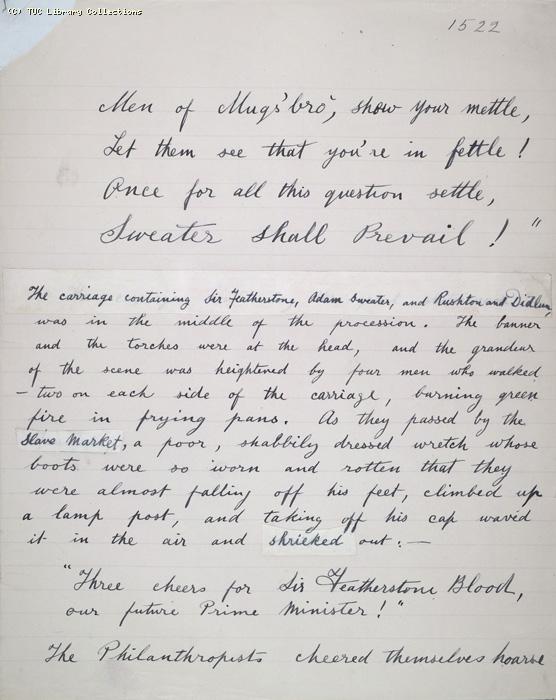 (C) TUC Library Collections
1522
Men of Mugs'bro', show your mettle,
Let them see that you're in fettle!
Once for all this question settle,
Sweater shall Prevail! "
The carriage containing Sir Featherstone, Adam Sweater, and Rushton and Didlum,
was in the middle of the procession. The banner
and the torches were at the head, and the grandeur
of the scene was heightened by four men who walked
– two on each side of the carriage, burning green
fire in frying pans. As they passed by the
Slave Market, a poor, shabbily dressed wretch whose
boots were so worn and rotten that they
were almost falling off his feet, climbed up
a lamp post, and taking off his cap waved
it in the air and shrieked out: —
"Three cheers for Sir Featherstone Blood,
our future Prime Minister!"
The Philanthropists cheered themselves hoarse